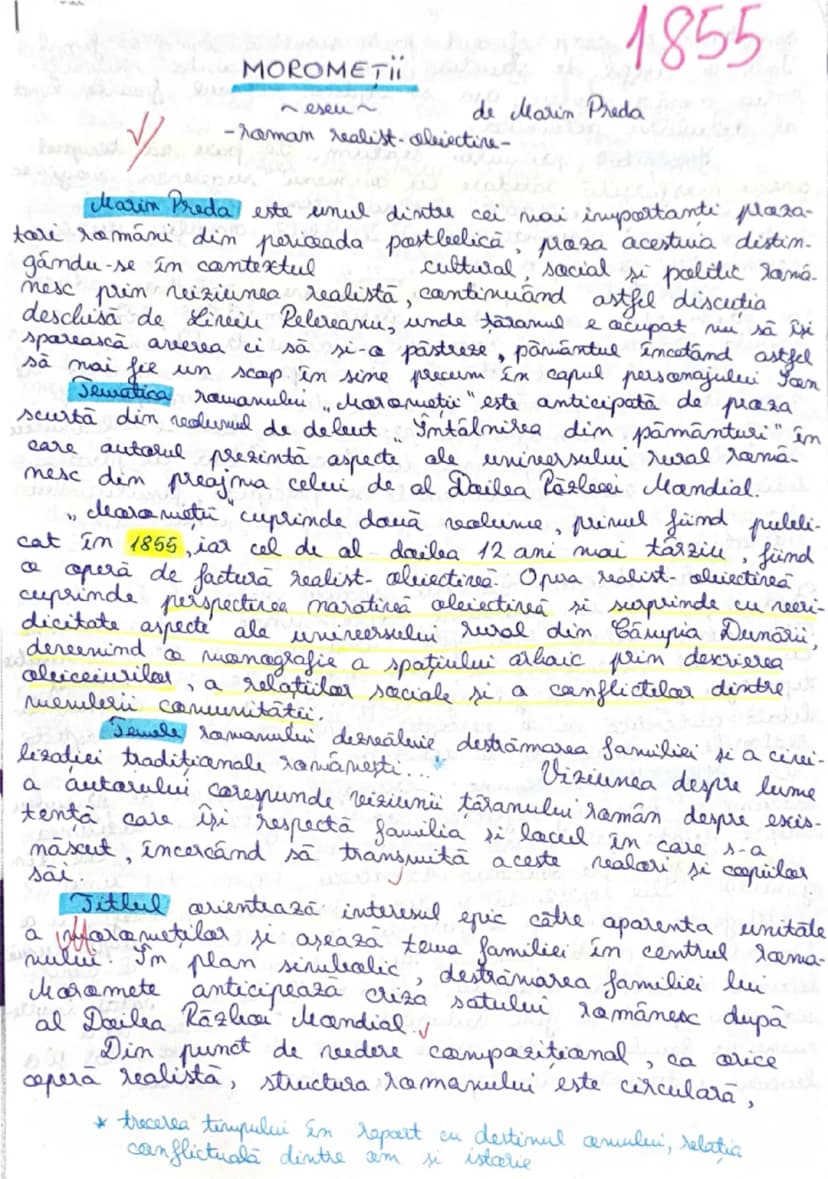 1855
MOROMEȚII
~ eseu ~
de Marin Preda
- roman realist-obiectiv -
Marin Preda este unul dintre cei mai importanți proza-
tori români din perioada postbelică, proza acestuia distin-
gându-se în contextul cultural, social și politic româ-
nesc prin viziunea realistă, continuând astfel discuția
deschisă de Liviu Rebreanu, unde țăranul e ocupat, nu să își
sporească averea, ci să și-o păstreze, pământul încetând astfel
să mai fie un scop în sine precum în capul personajului Ion
Tematica romanului "Moromeții" este anticipată de proza
scurtă din volumul de debut "Întâlnirea din pământuri" în
care autorul prezintă aspecte ale universului rural româ-
nesc din preajma celui de al Doilea Război Mondial.
"Moromeții" cuprinde două volume, primul fiind publi-
cat în 1855, iar cel de al doilea 12 ani mai târziu, fiind
o operă de factură realist-obiectivă. Opera realist-obiectivă
cuprinde perspectiva narativă obiectivă și surprinde cu veri-
dicitate aspecte ale universului rural din Câmpia Dunării,
devenind o monografie a spațiului arhaic prin descrierea
obiceiurilor, a relațiilor sociale și a conflictelor dintre
membrii comunității.
Temele romanului dezvăluie destrămarea familiei și a civi-
lizației tradiționale românești... * Viziunea despre lume
a autorului corespunde viziunii țăranului român despre exis-
tență care își respectă familia și locul în care s-a
născut, încercând să transmită aceste valori și copiilor
săi.
Titlul orientează interesul epic către aparenta unitate
a Moromeților și așează tema familiei în centrul roma-
nului. În plan simbolic, destrămarea familiei lui
Moromete anticipează criza satului românesc după
al Doilea Război Mondial.
Din punct de vedere compozițional, ca orice
operă realistă, structura romanului este circulară,
* trecerea timpului în raport cu destinul omului, relația
conflictuală dintre om și istorie